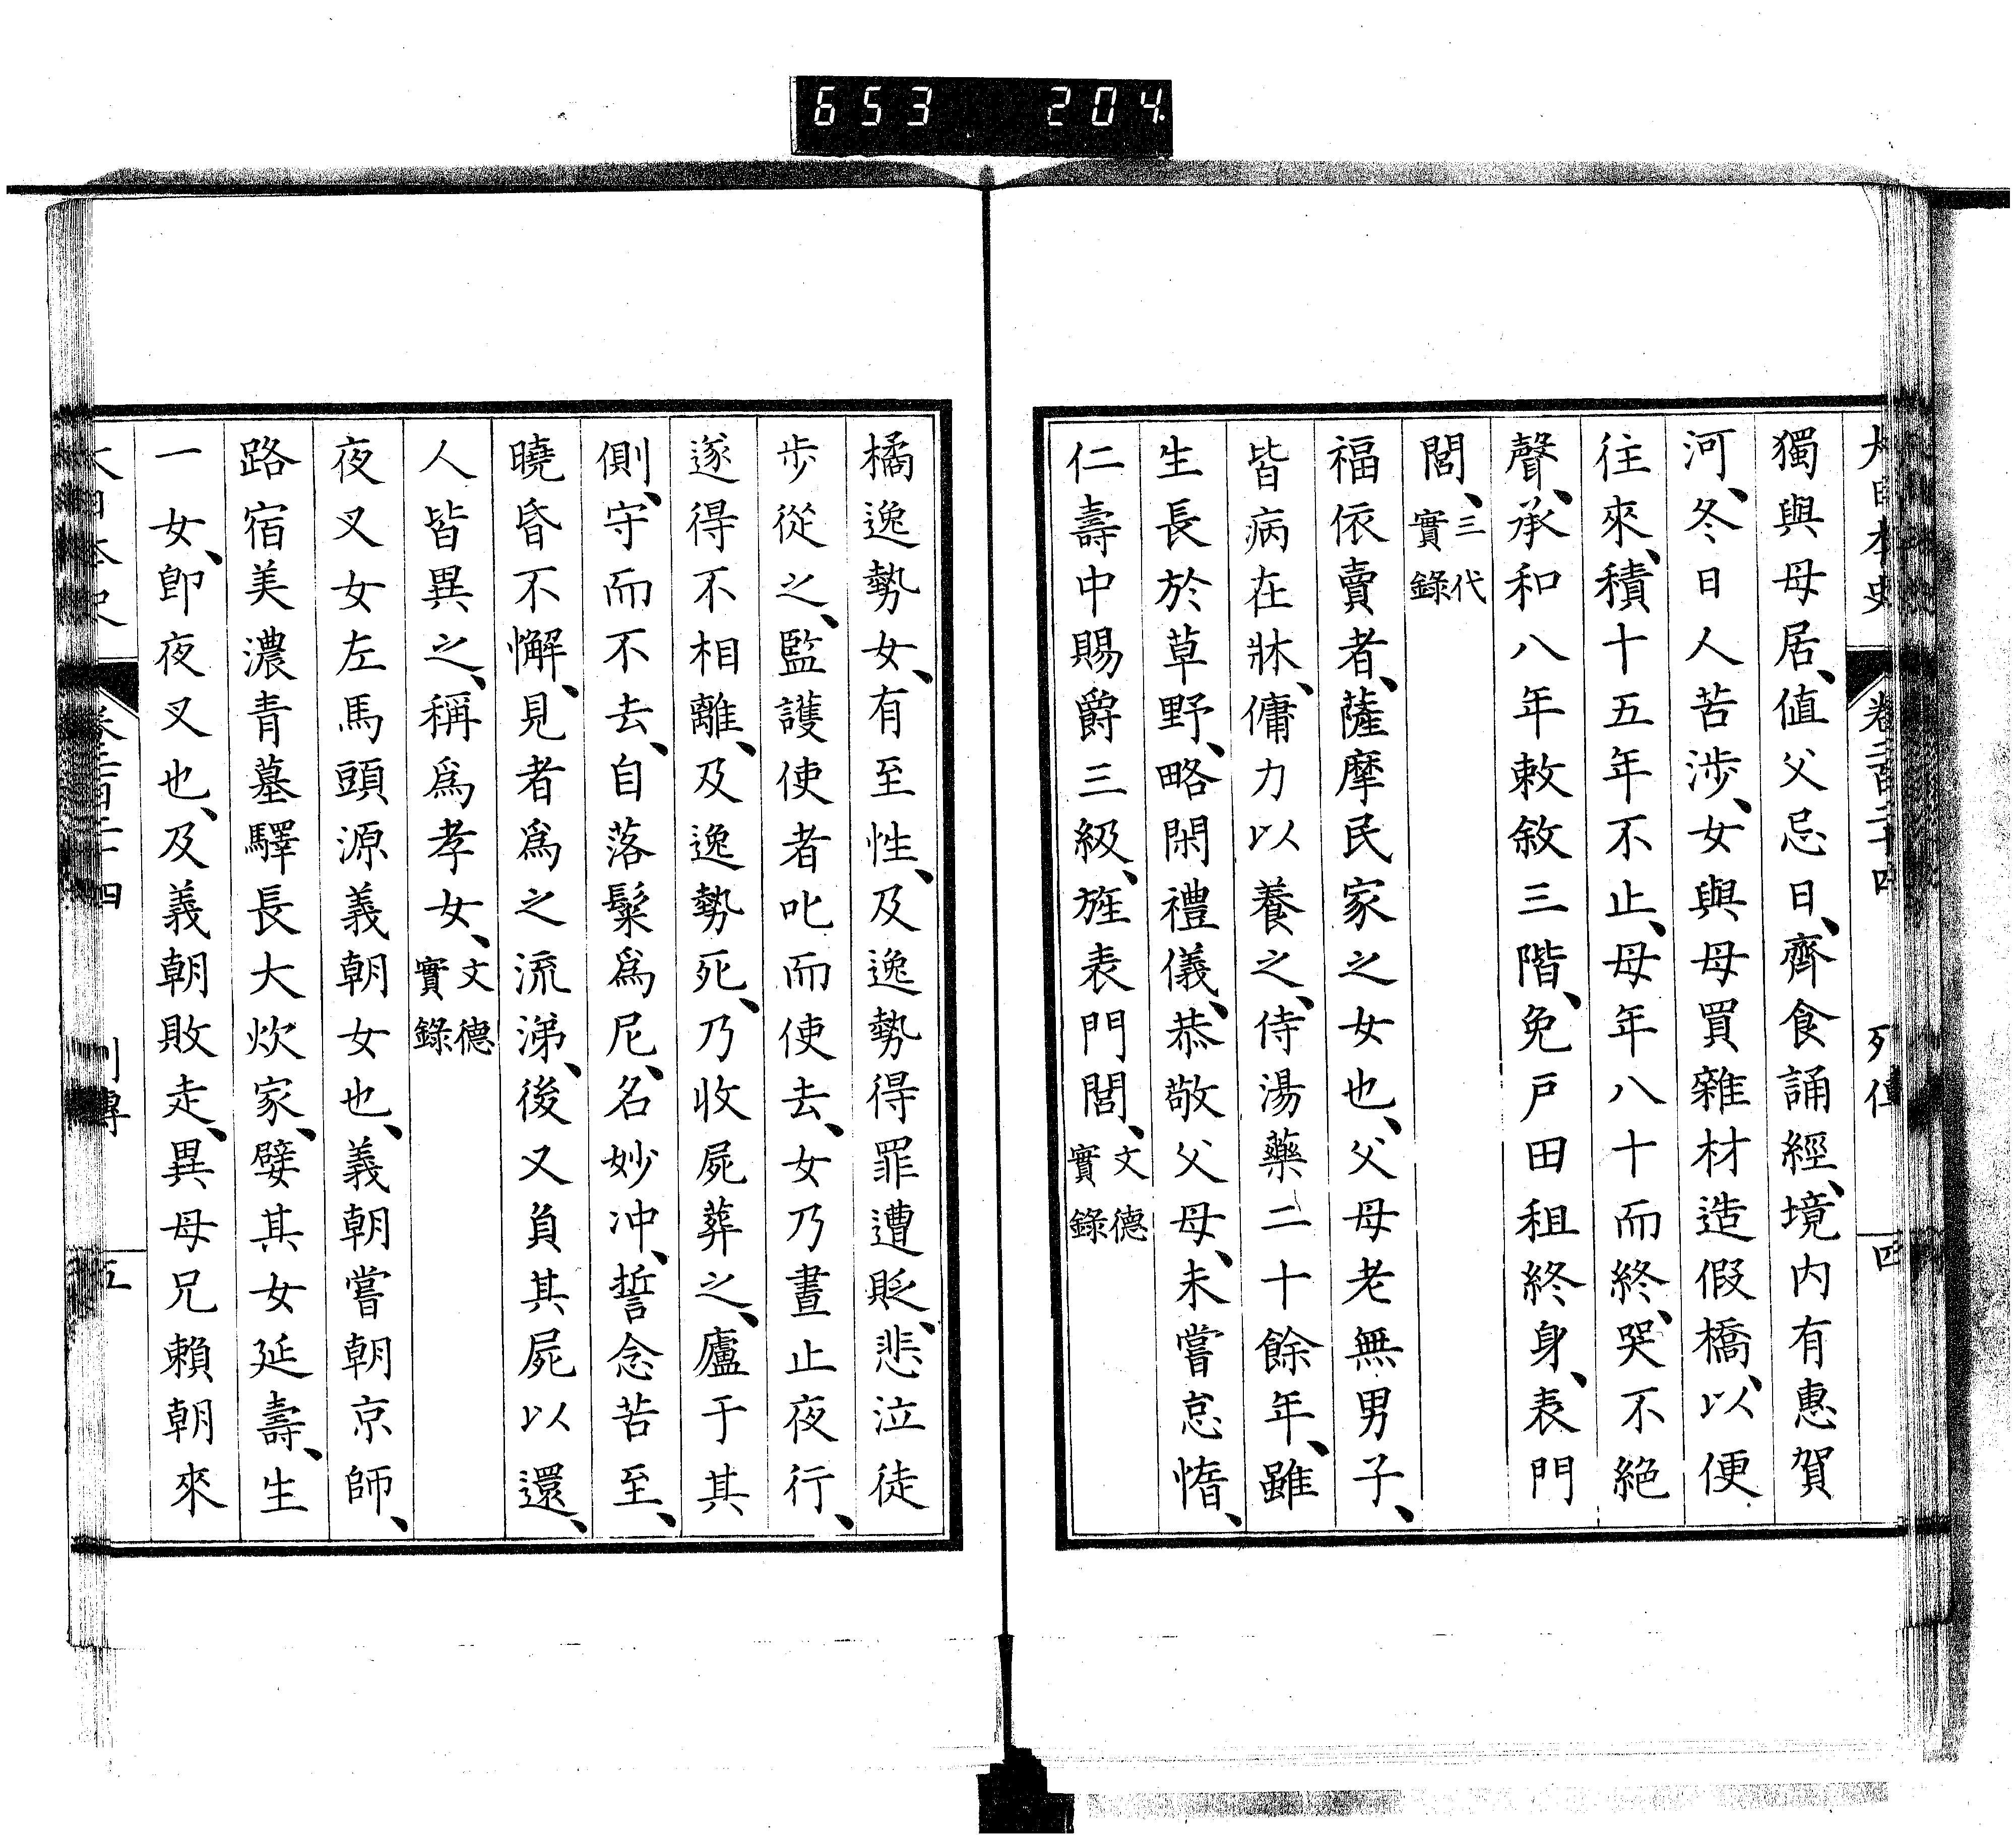 653 204
大日本史 卷二百二十四 列傳 四
獨與母居、値父忌日、齊食誦經、境内有惠賀
河、冬日人苦渉、女與母買雜材造假橋、以便
往來、積十五年不止、母年八十而終、哭不絶
聲、承和八年敕敘三階、免戸田租終身、表門
閭、三代實錄
福依賣者、薩摩民家之女也、父母老無男子、
皆病在牀、傭力以養之、侍湯藥二十餘年、雖
生長於草野、略閑禮儀、恭敬父母、未嘗怠惰、
仁壽中賜爵三級、旌表門閭、文德實錄
橘逸勢女、有至性、及逸勢得罪遭貶、悲泣徒
歩從之、監護使者叱而使去、女乃晝止夜行、
遂得不相離、及逸勢死、乃收屍葬之、廬于其
側、守而不去、自落髮爲尼、名妙冲、誓念苦至、
曉昏不懈、見者爲之流涕、後又負其屍以還、
人皆異之、稱爲孝女、文德實錄
夜叉女左馬頭源義朝女也、義朝嘗朝京師、
路宿美濃青墓驛長大炊家、嬖其女延壽、生
一女、卽夜叉也、及義朝敗走、異母兄賴朝來
大日本史 卷二百二十四 列傳 五